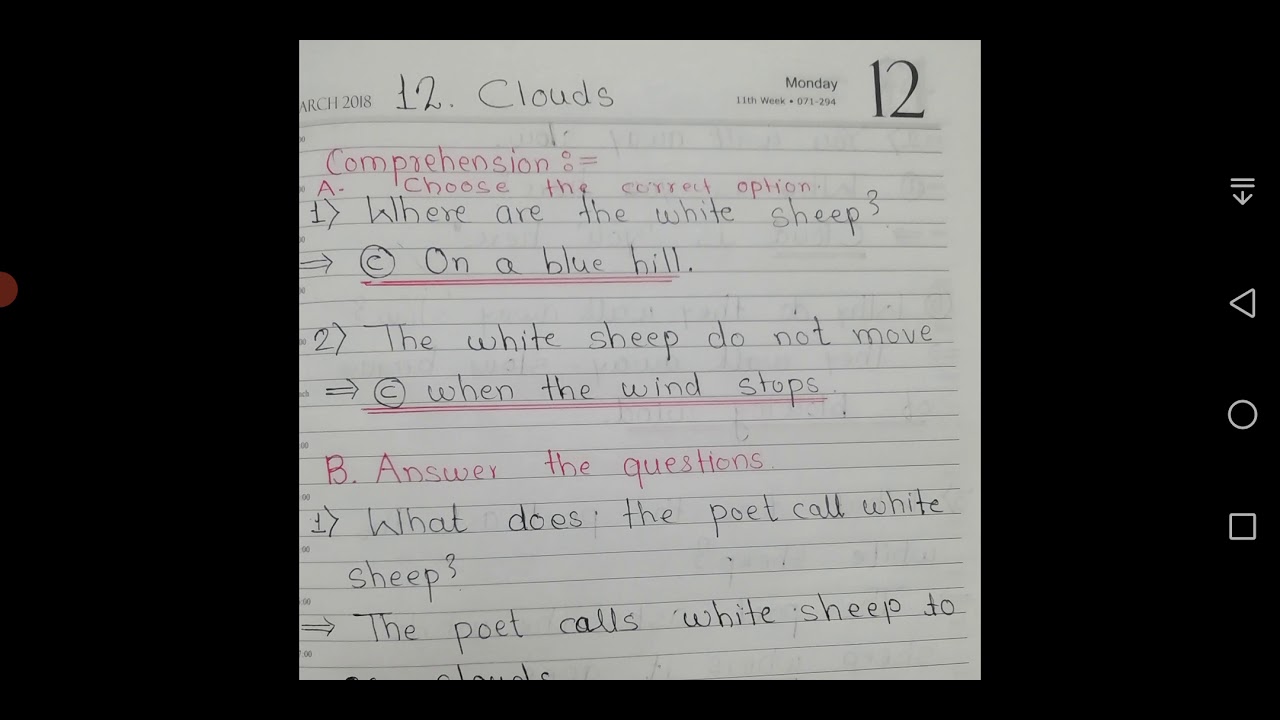 ARCH 2018 12. Clouds Monday 12
11th Week • 071-294
Comprehension :=
A- Choose the correct option.
1) Where are the white sheep?
⇒ ⓒ On a blue hill.
2) The white sheep do not move
⇒ ⓒ when the wind stops.
B. Answer the questions.
1) What does the poet call white
sheep?
⇒ The poet calls white sheep to
clouds